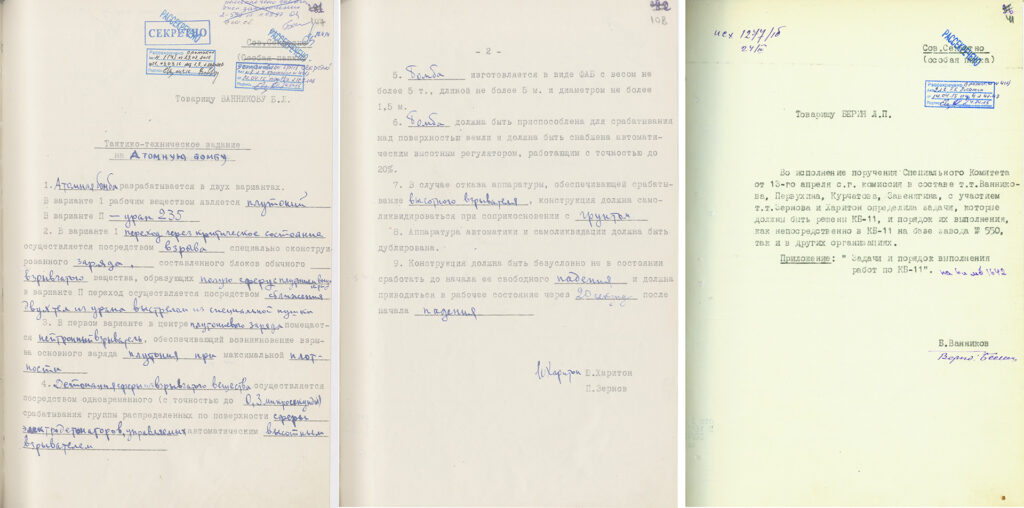 107
РАССЕКРЕЧЕНО
СЕКРЕТНО
Сов.Секретно
(Особая папка)
Товарищу ВАННИКОВУ Б.Л.
Тактико-техническое задание
на Атомную бомбу
1. Атомная бомба разрабатывается в двух вариантах.
В варианте 1 рабочим веществом является плутоний
В варианте П — уран 235
2. В варианте 1 переход через критическое состояние
осуществляется посредством взрыва специально сконструи-
рованного заряда, составленного блоков обычного
взрывчатого вещества, образующих полую сферу
в варианте П переход осуществляется посредством сближения
двух тел из урана выстрелом из специальной пушки
3. В первом варианте в центре плутониевого заряда помещает-
ся нейтронный взрыватель, обеспечивающий возникновение взры-
ва основного заряда плутония при максимальной плот-
ности
4. Детонация сферы взрывчатого вещества осуществляется
посредством одновременного (с точностью до 0,3 микросекунды)
срабатывания группы распределенных по поверхности сферы
электродетонаторов, управляемых автоматическим высотным
взрывателем
108
- 2 -
5. Бомба изготовляется в виде ФАБ с весом не
более 5 т., длиной не более 5 м. и диаметром не более
1,5 м.
6. Бомба должна быть приспособлена для срабатывания
над поверхностью земли и должна быть снабжена автомати-
ческим высотным регулятором, работающим с точностью до
20%.
7. В случае отказа аппаратуры, обеспечивающей срабаты-
вание высотного взрывателя, конструкция должна само-
ликвидироваться при соприкосновении с грунтом
8. Аппаратура автоматики и самоликвидации должны быть
дублирована.
9. Конструкция должна быть безусловно не в состоянии
работать до начала ее свободного падения и должна
приводиться в рабочее состояние через 20 секунд после
начала падения
Ю.Харитон
П.Зернов
исх 1277/1б
РАССЕКРЕЧЕНО
Сов.Секретно
(особая папка)
Товарищу БЕРИЯ Л.П.
Во исполнение поручения Специального Комитета
от 13-го апреля с.г. комиссия в составе т.т.Ваннико-
ва, Первухина, Курчатова, Завенягина, с участием
т.т.Зернова и Харитон определила задачи, которые
должны быть решены КБ-11, и порядок их выполнения,
как непосредственно в КБ-11 на базе завода № 550,
так и в других организациях.
Приложение: " Задачи и порядок выполнения
работ по КБ-11".
Б.Ванников
Верно: